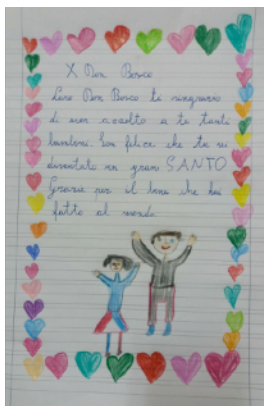 X Don Bosco
Caro Don Bosco ti ringrazio
di aver accolto a te tanti
bambini. Son felice che tu sei
diventato un gran SANTO
Grazie per il bene che hai
fatto al mondo.